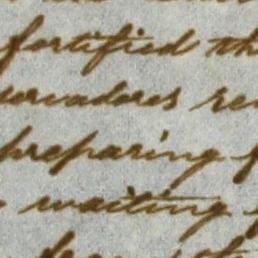 fortified th
urvadores re
preparing f
waiting